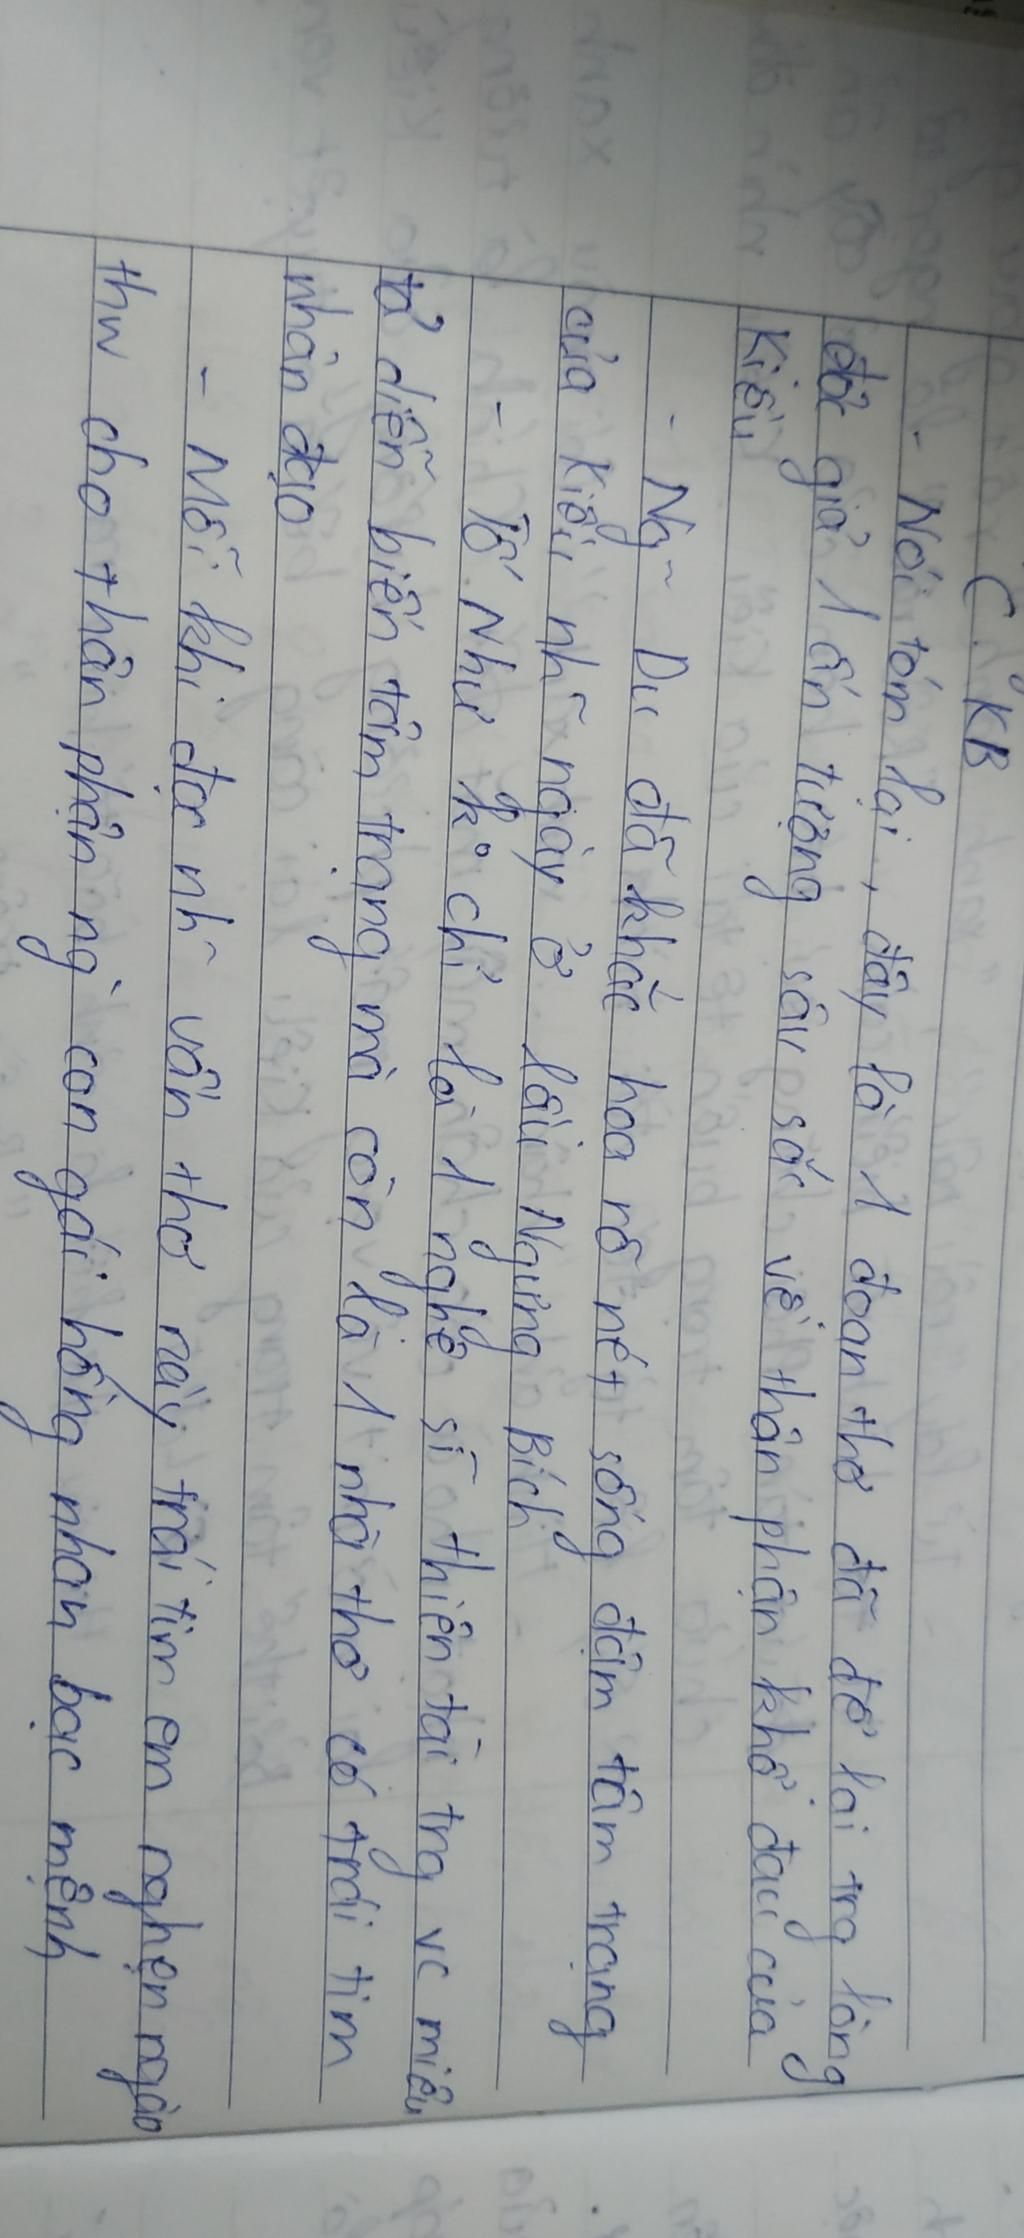 C. KB
- Nói tóm lại, đây là 1 đoan thơ đã để lại trg lòng
đôc giả 1 ấn tượng sâu sắc về thân phận khổ đau của
Kiều
- Ng~ Du đã khắc hoa rõ nét sống đậm tâm trạng
của Kiều nh~ ngày ở lầu Ngưng Bích
- Tố Như k° chỉ là 1 nghệ sĩ thiên tài trg vc miêu
tả diễn biến tâm trạng mà còn là 1 nhà thơ có trái tim
nhân đạo
- Mỗi khi đọc nh~ vần thơ này trái tim em nghẹn ngào
thw cho thân phận ng` con gái hồng nhan bạc mệnh